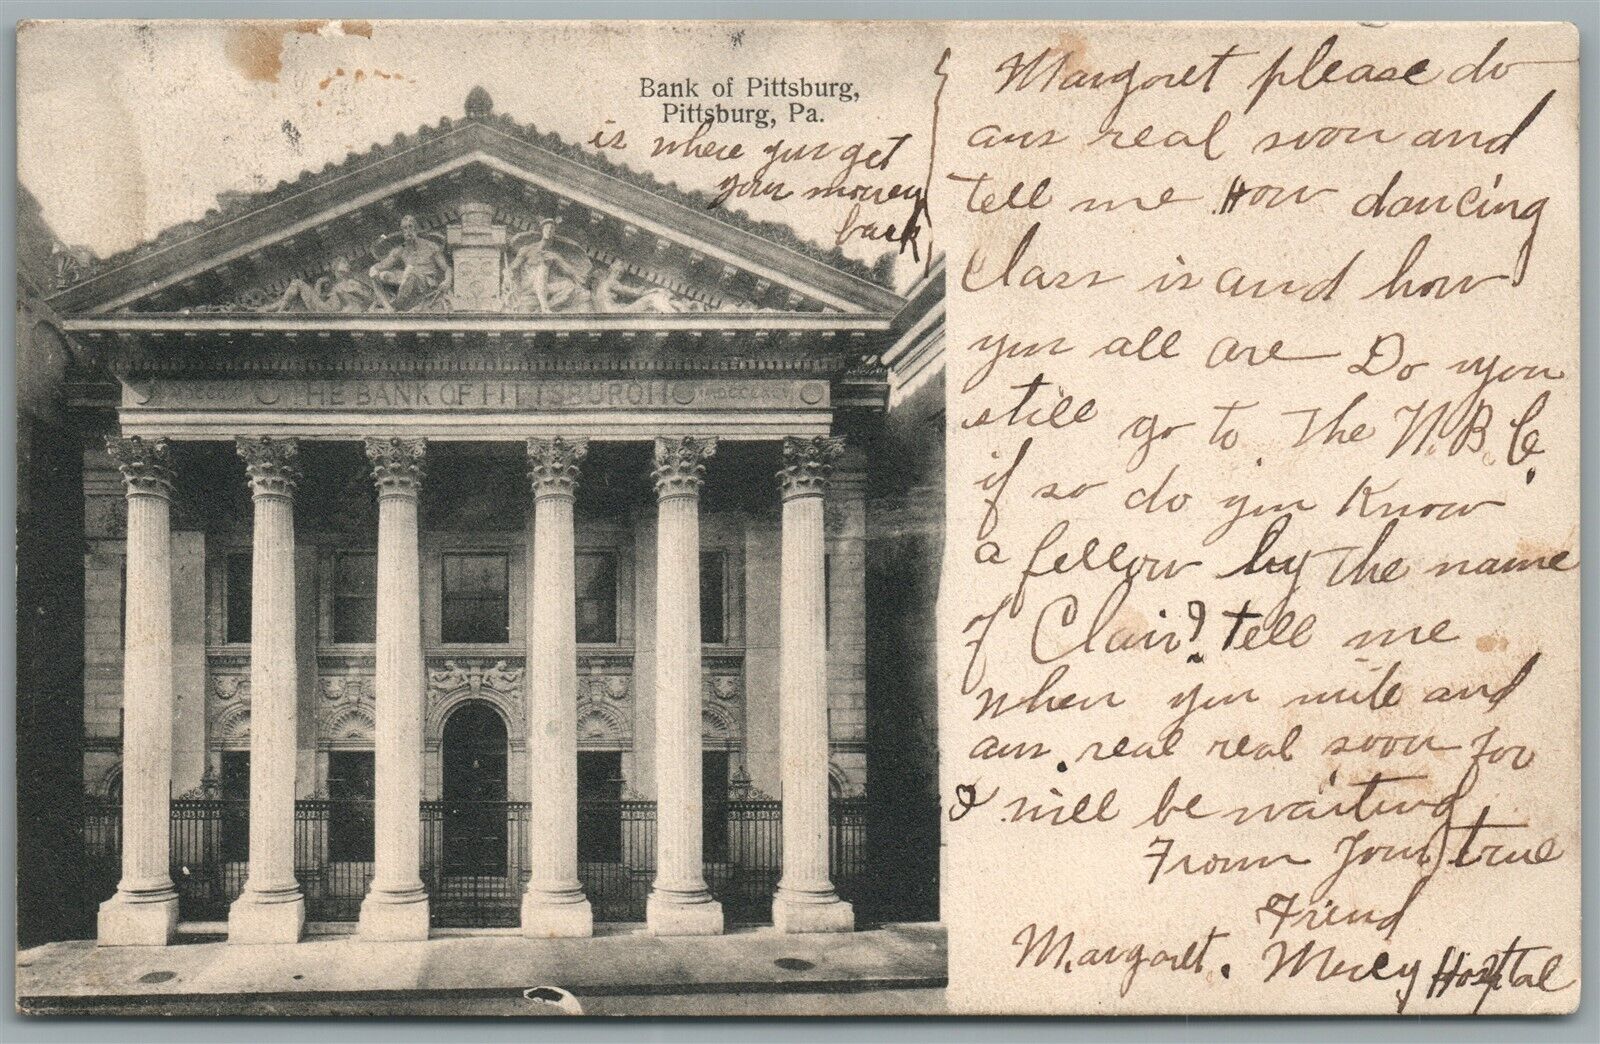 Bank of Pittsburg,
Pittsburg, Pa.
is where you get
your money
back
THE BANK OF PITTSBURGH
Margaret please do
ans real soon and
tell me How dancing
Class is and how
you all are Do you
still go to The N.B.C.
if so do you Know
a fellow by the name
of Clair? tell me
when you write and
ans. real real soon for
I will be waiting
From Your true
Friend
Margaret. Mercy Hospital